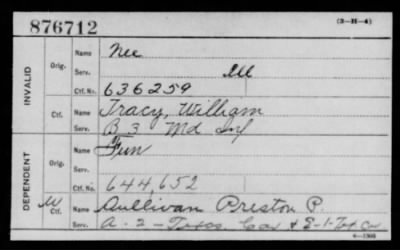 876712 (3-H-4)
INVALID
Orig.
Name Nee
Serv. Ill
Ctf. No. 636259
Ctf.
Name Tracy, William
Serv. B 3 Md Inf
DEPENDENT
Orig.
Name Fun
Serv.
Ctf. No. 644,652
Ctf.
Name Sullivan Preston P.
Serv. A - 2 - Cav & E-1-
6—1566